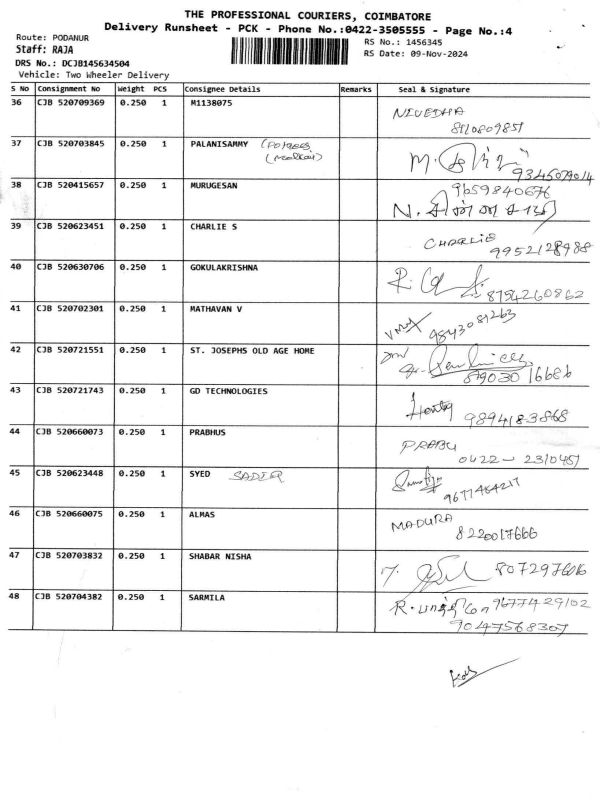 THE PROFESSIONAL COURIERS, COIMBATORE
Delivery Runsheet - PCK - Phone No.:0422-3505555 - Page No.:4
Route: PODANUR
RS No.: 1456345
Staff: RAJA
RS Date: 09-Nov-2024
DRS No.: DCJB145634504
Vehicle: Two Wheeler Delivery
S No Consignment No Weight PCS Consignee Details Remarks Seal & Signature
36 CJB 520709369 0.250 1 M1138075 NIVEDHA
37 CJB 520703845 0.250 1 PALANISAMMY
38 CJB 520415657 0.250 1 MURUGESAN 9659840676
39 CJB 520623451 0.250 1 CHARLIE S CHARLIE
9952128988
40 CJB 520630706 0.250 1 GOKULAKRISHNA 8754260862
41 CJB 520702301 0.250 1 MATHAVAN V 9843081263
42 CJB 520721551 0.250 1 ST. JOSEPHS OLD AGE HOME
8903016686
43 CJB 520721743 0.250 1 GD TECHNOLOGIES
9894183868
44 CJB 520660073 0.250 1 PRABHUS PRABU
0422-
45 CJB 520623448 0.250 1 SYED SADIQ
46 CJB 520660075 0.250 1 ALMAS MADURA
8220017666
47 CJB 520703832 0.250 1 SHABAR NISHA
48 CJB 520704382 0.250 1 SARMILA 9677429102
9047568307